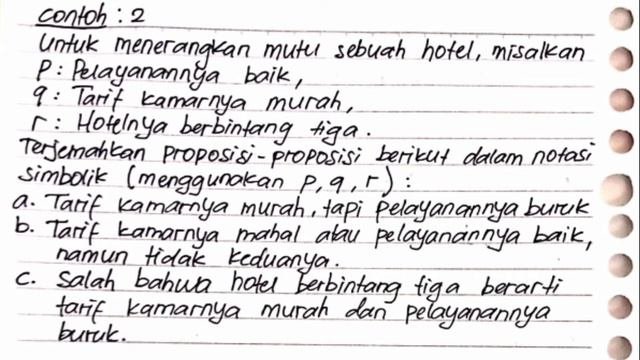 contoh : 2
Untuk menerangkan mutu sebuah hotel, misalkan
P : Pelayanannya baik,
q : Tarif kamarnya murah,
r : Hotelnya berbintang tiga.
Terjemahkan proposisi-proposisi berikut dalam notasi
simbolik (menggunakan p, q, r) :
a. Tarif kamarnya murah, tapi pelayanannya buruk
b. Tarif kamarnya mahal atau pelayanannya baik,
namun tidak keduanya.
c. Salah bahwa hotel berbintang tiga berarti
tarif kamarnya murah dan pelayanannya
buruk.